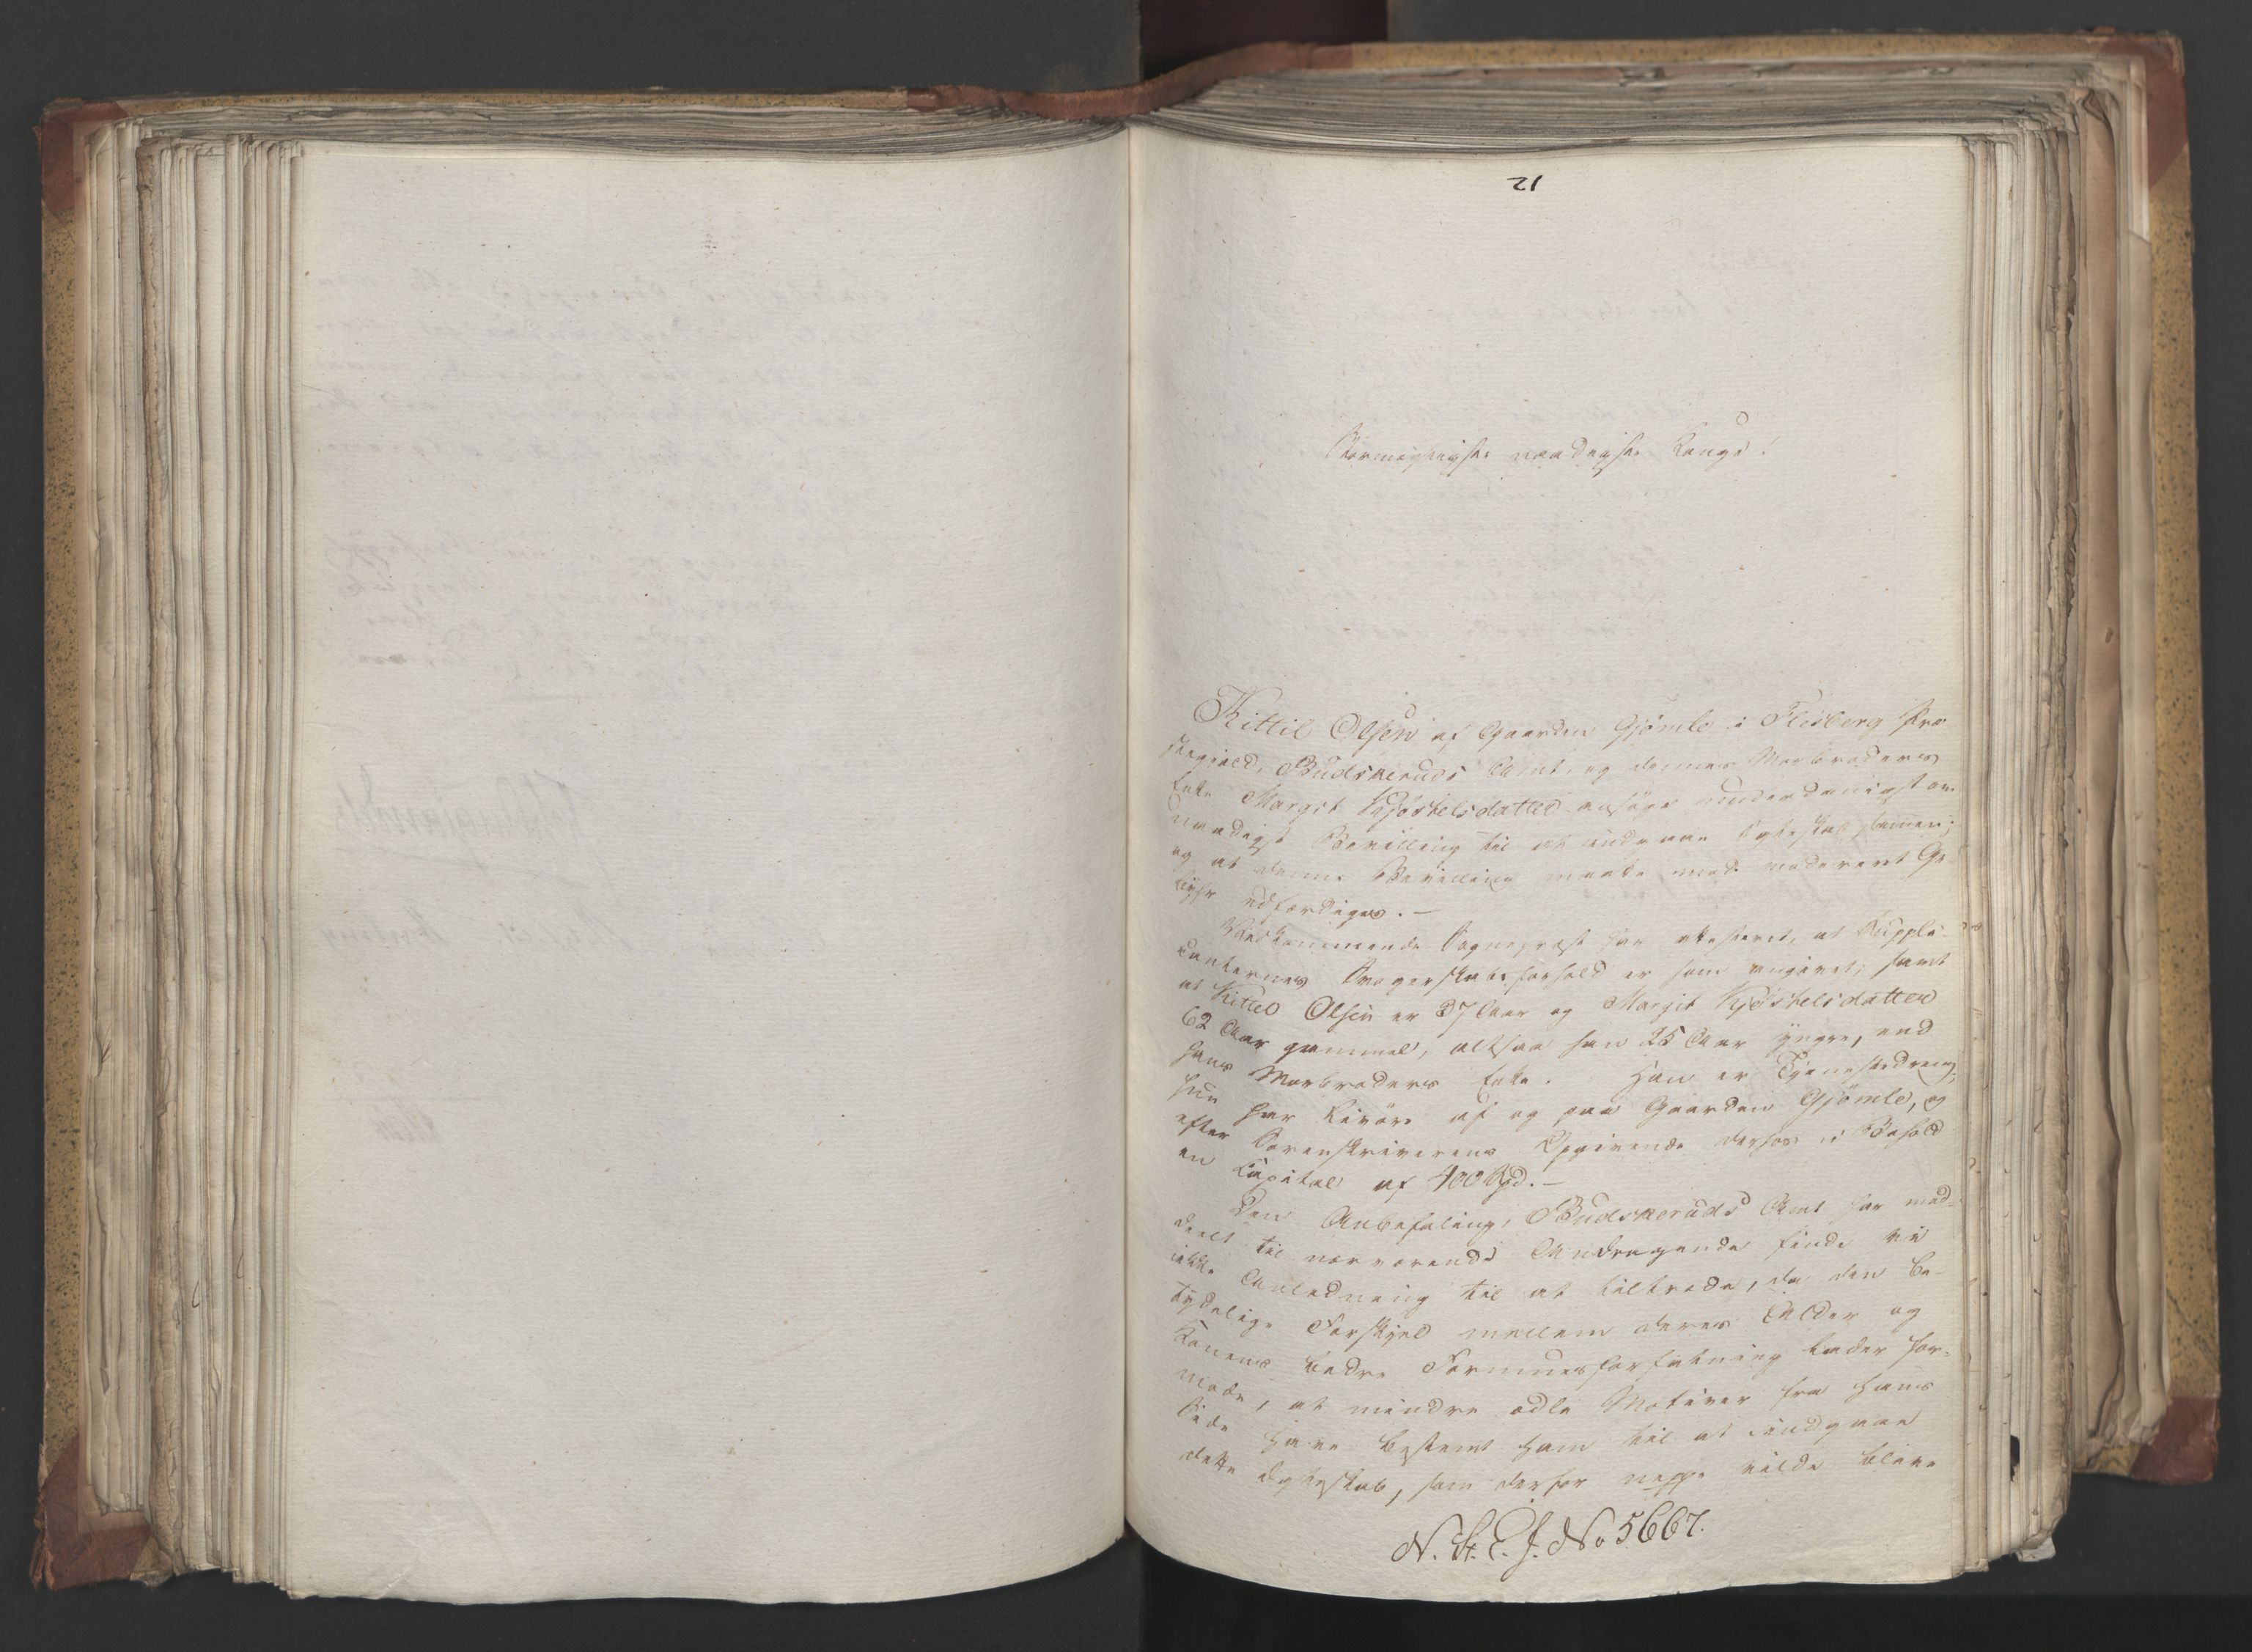 12
Stormægtigste naadigste Konge!
Kittil Olsen af Gaarden Gjömle i Flesberg Præ-
stegield, Budskeruds Amt, og dennes Morbroders
Enke Margit Kjöstelsdatter ansöge underdanigst om
naadigst Bevilling til at indgaae Egteskab sammen;
og at denne Bevilling maatte med modereret Ge-
byhr udfærdiges. —
Vedkommende Sognepræst har attesteret, at Suppli-
canternes Svogerskabsforhold er som angivet, samt
at Kittel Olsen er 37 Aar og Margit Kjöstelsdatter
62 Aar gammel, altsaa han 25 Aar yngre, end
hans Morbroders Enke. Han er Tjenestedreng;
hun har Livöre af og paa Gaarden Gjömle, og
efter Sorenskriverens Opgivende derhos i Behold
en Capital af 400 Spd. —
Den Anbefaling, Budskeruds Amt har med-
deelt til nærværende Andragende finde vi
ikke Anledning til at tiltræde, da den be-
tydelige Forskjel mellem deres Alder og
Konens bedre Formuesforfatning lader for-
mode, at mindre ædle Motiver fra hans
Side have bestemt ham til at indgaae
dette Egteskab, som derfor neppe vilde blive
N. G. C. J. No 5667.